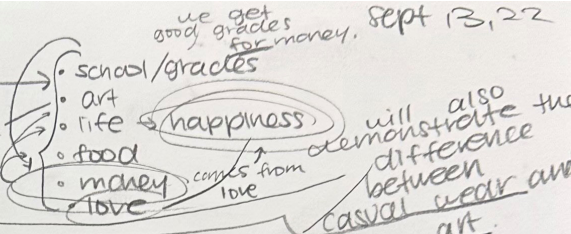 we get
good grades
for money.
sept 13, 22
• school/grades
• art
• life → happiness
• food
• money
• love
comes from
love
will also
demonstrate the
difference
between
casual wear and
art.